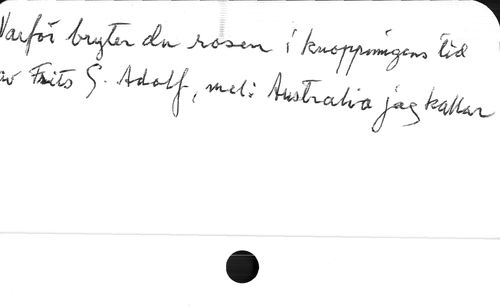 Varför bryter du rosen i knoppningens tid
av Frits G. Adolf, mel: Australia jag kallar